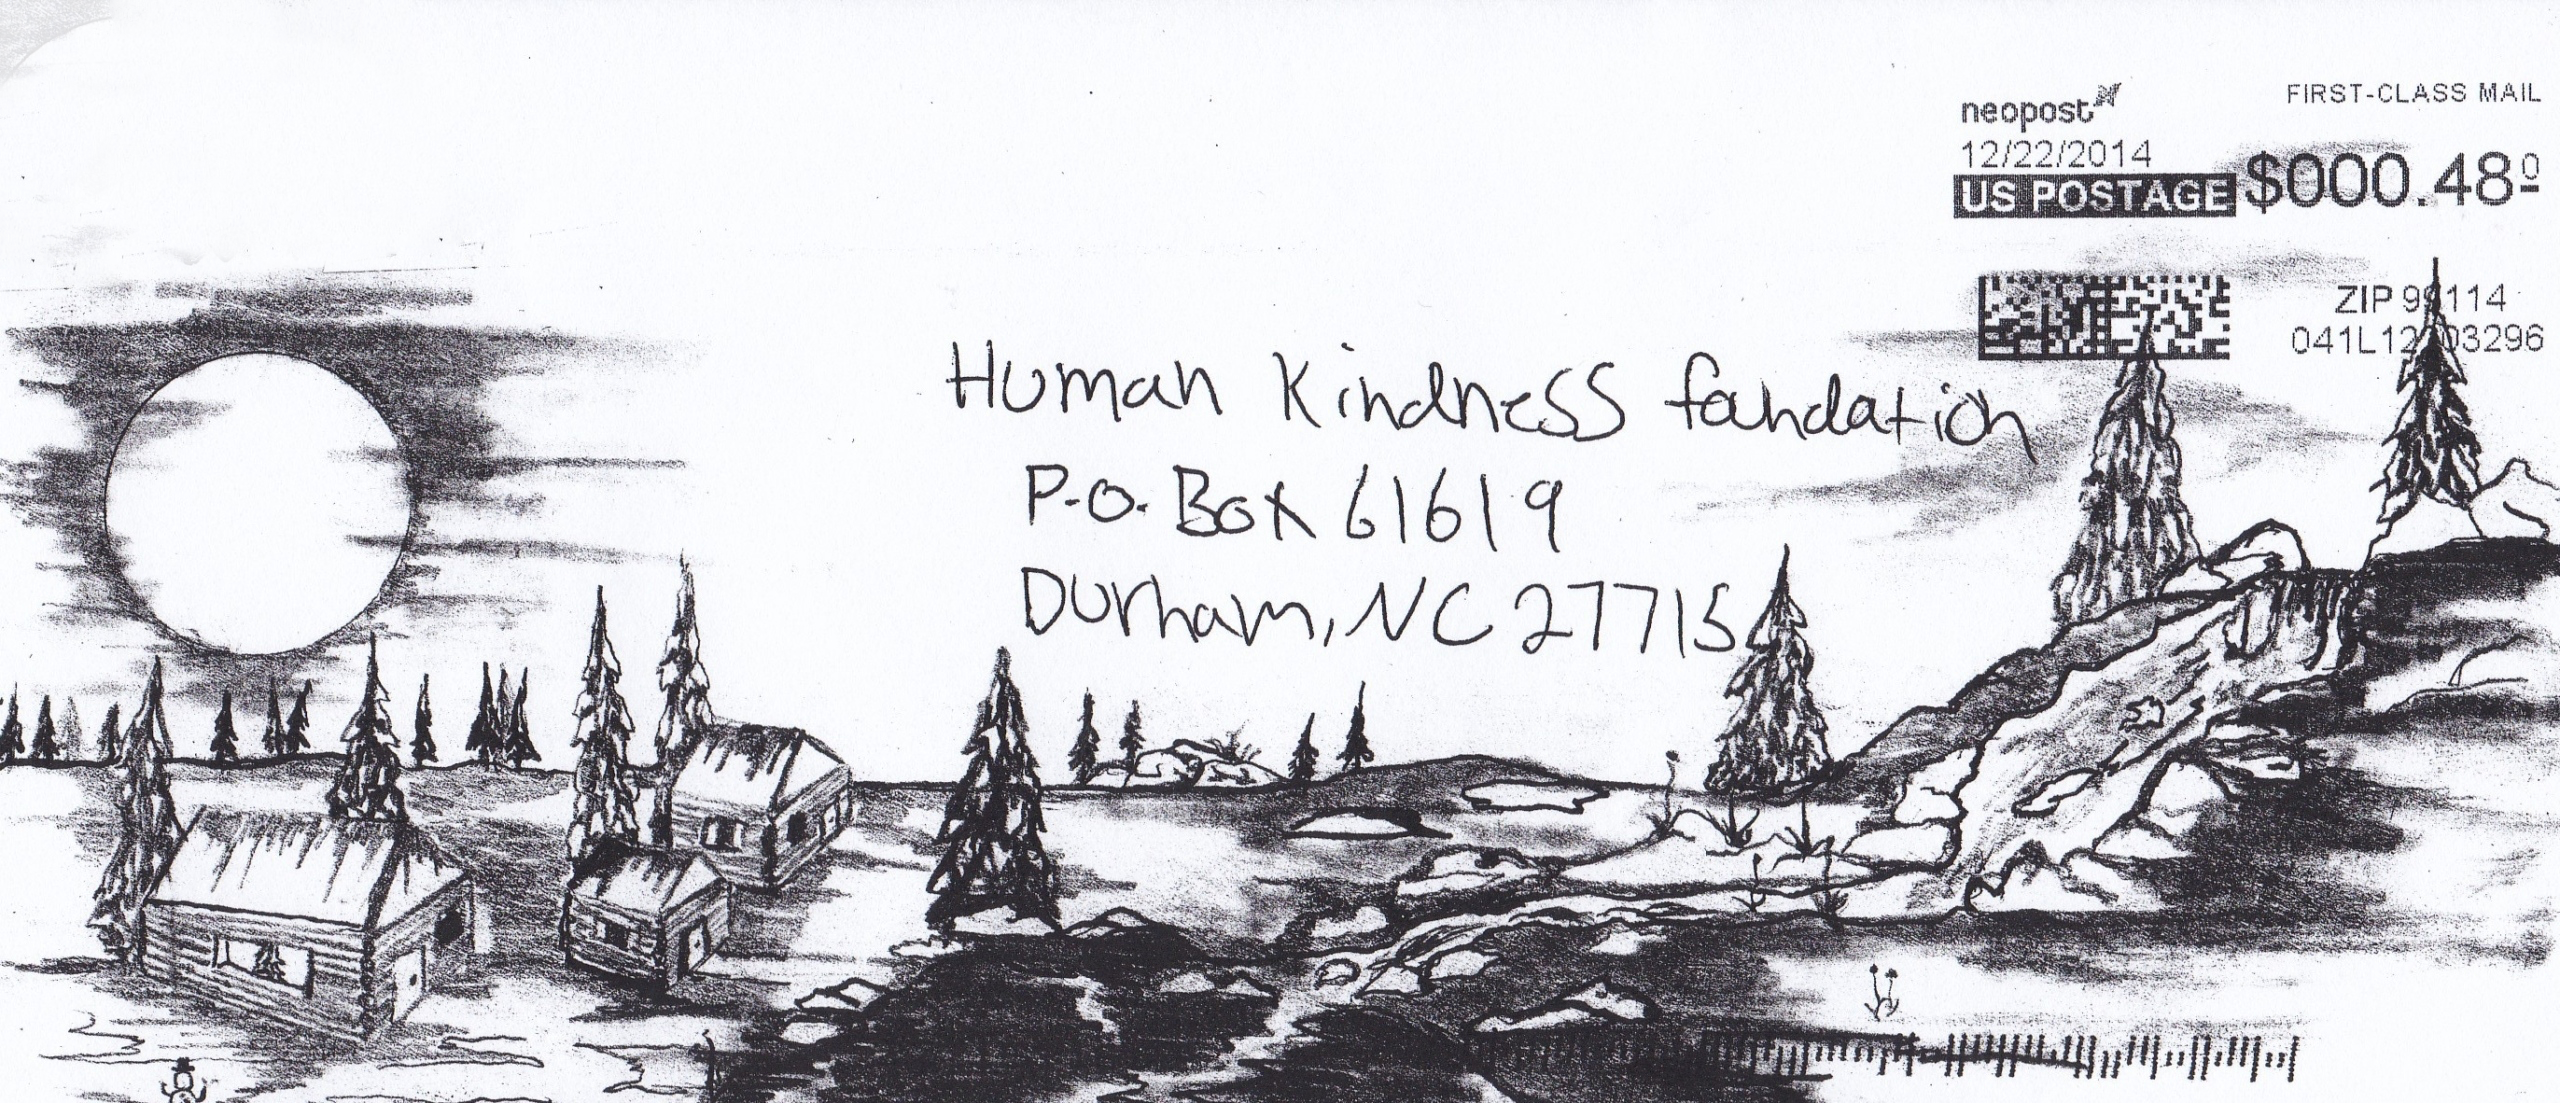 neopost
FIRST-CLASS MAIL
12/22/2014
US POSTAGE $000.48⁰
ZIP 99114
041L12203296
Human Kindness foundation
P.O. Box 61619
Durham, NC 27715